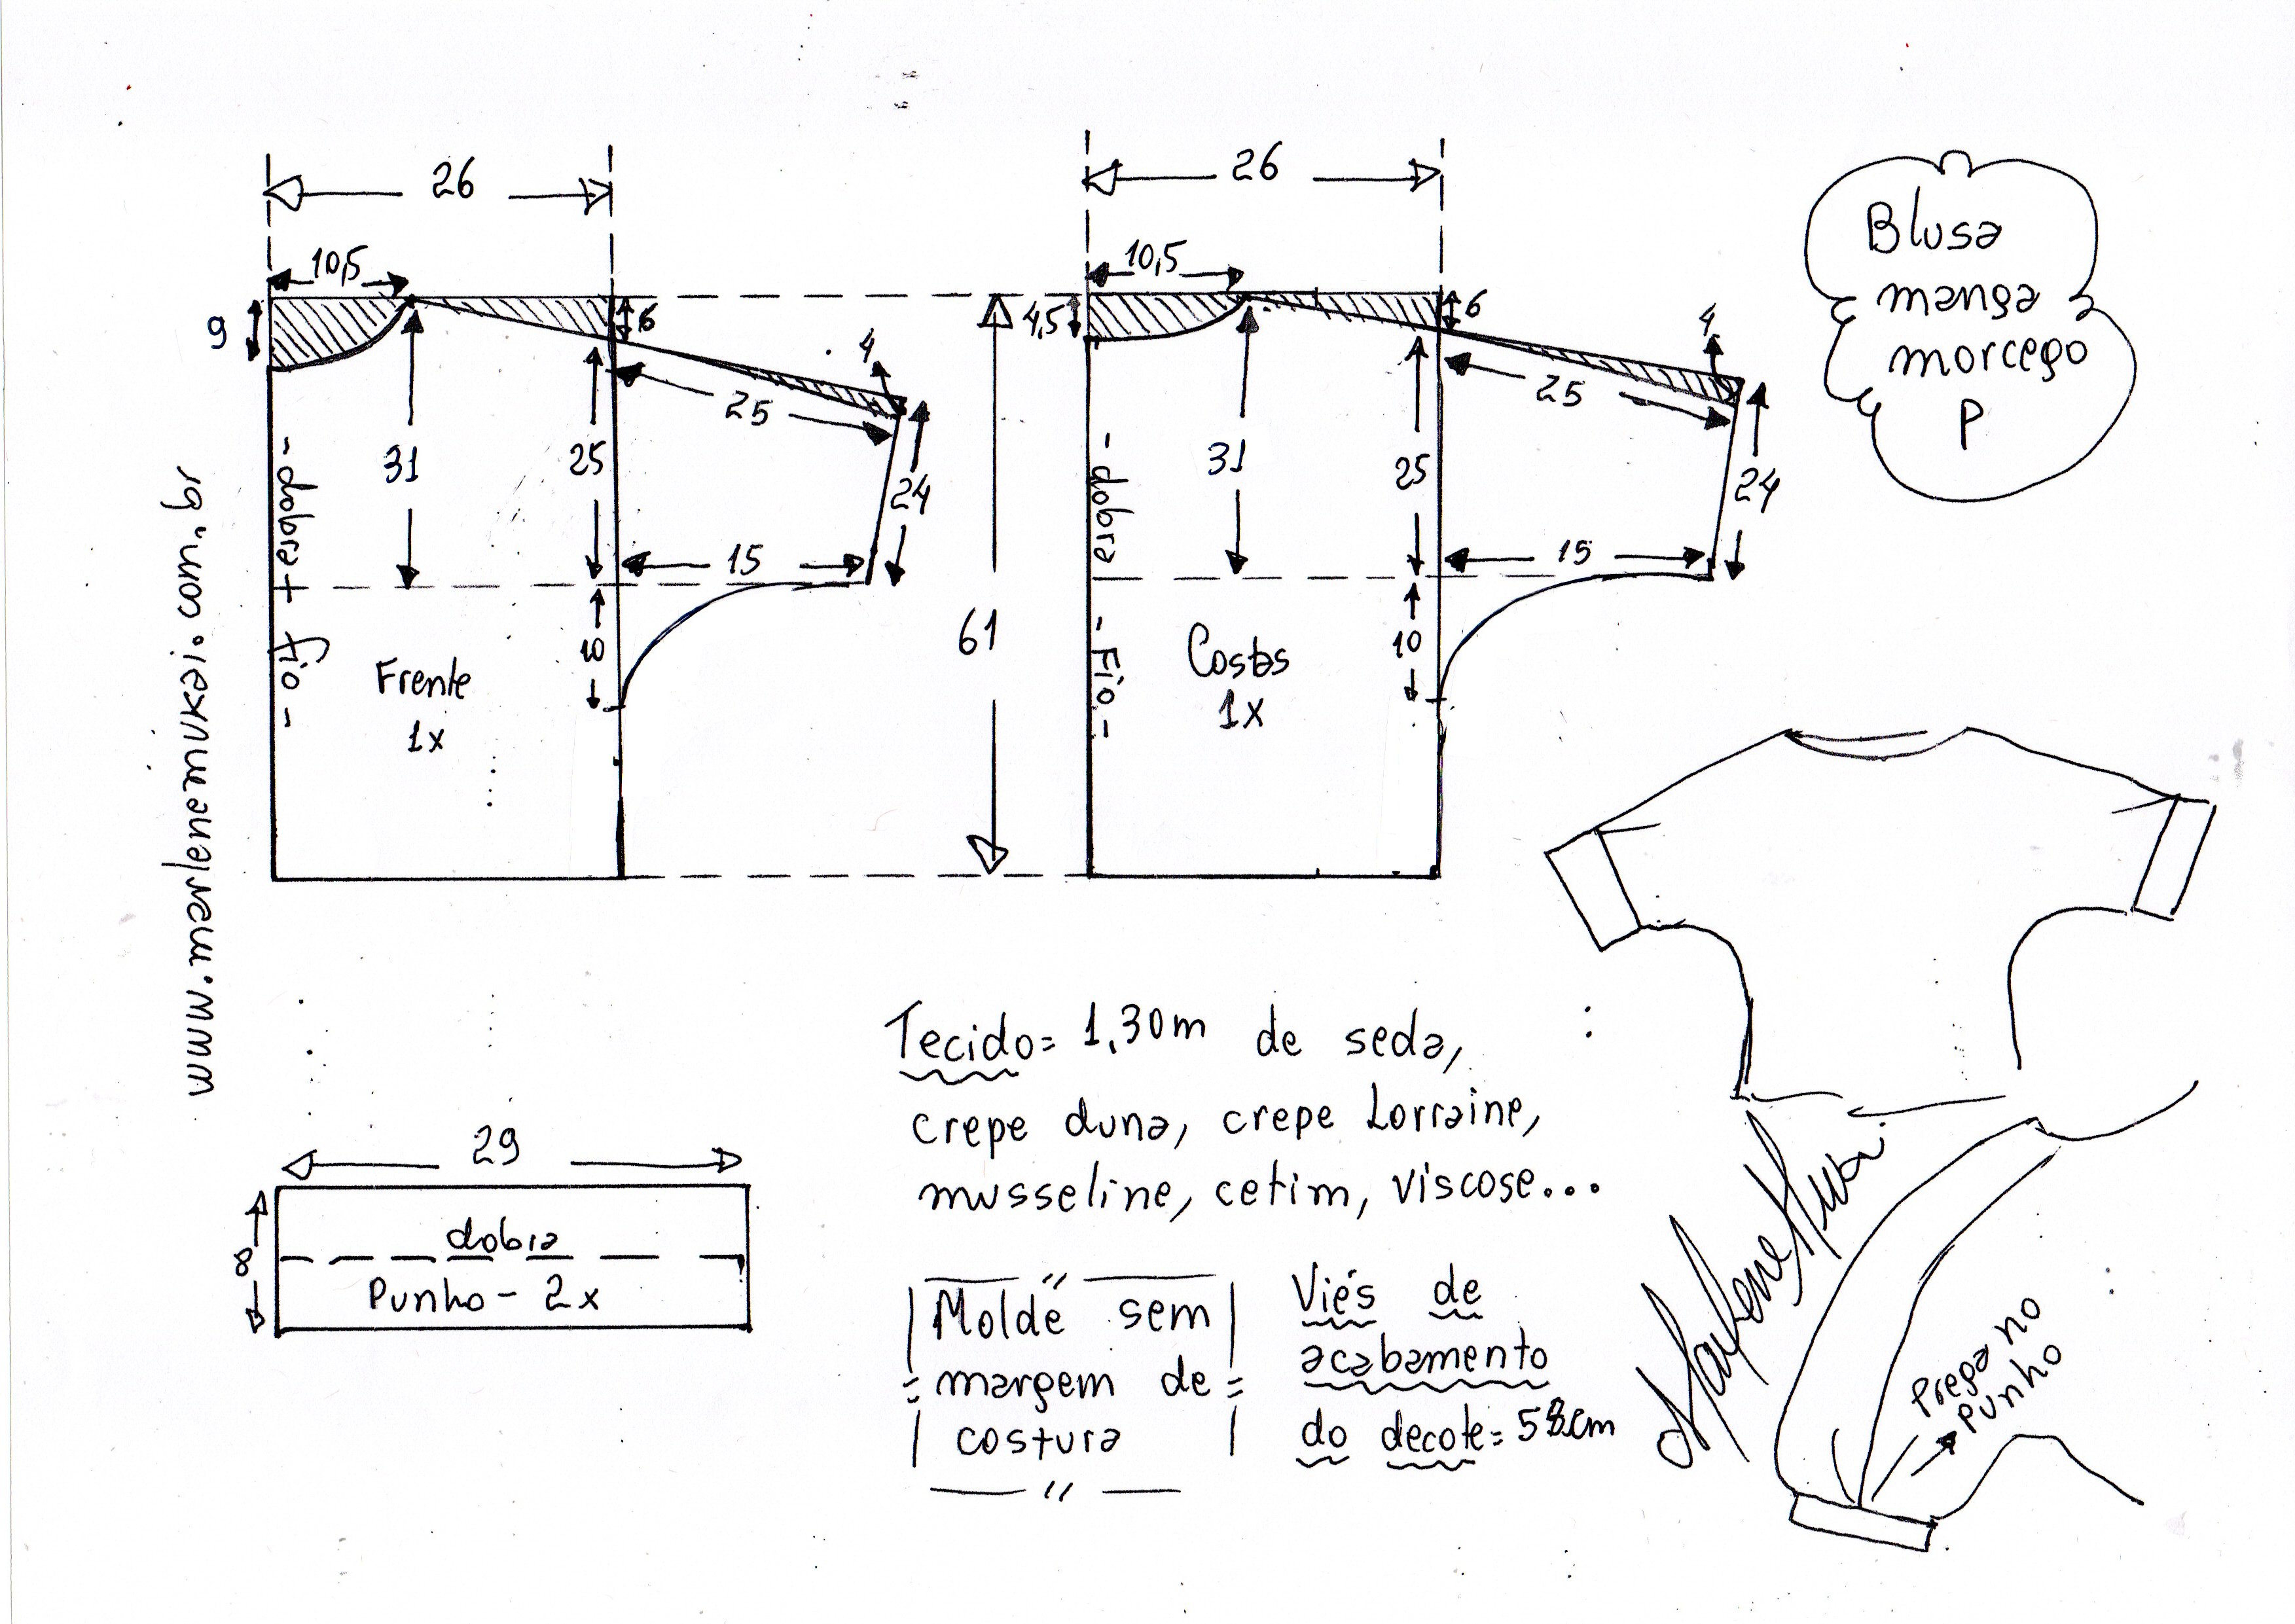 26
10,5
9
6
4
25
31
25
24
15
10
- dobra + fio -
Frente
1x
61
26
10,5
4,5
6
4
25
31
25
24
15
10
- dobra - Fio -
Costas
1x
Blusa
manga
morcego
P
www.marlenemukai.com.br
29
8
dobra
Punho - 2x
Tecido = 1,30m de seda,
crepe duna, crepe Lorraine,
musseline, cetim, viscose...
Molde sem
margem de
costura
Viés de
acabamento
do decote = 58cm
Marlene Mukai
Prega no
punho